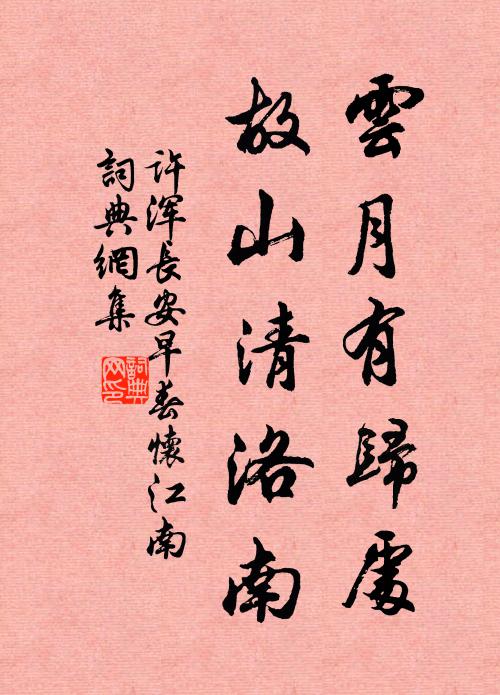 雲月有歸處
故山清洛南
许渾長安早春懷江南
詞典網集
詞典網印